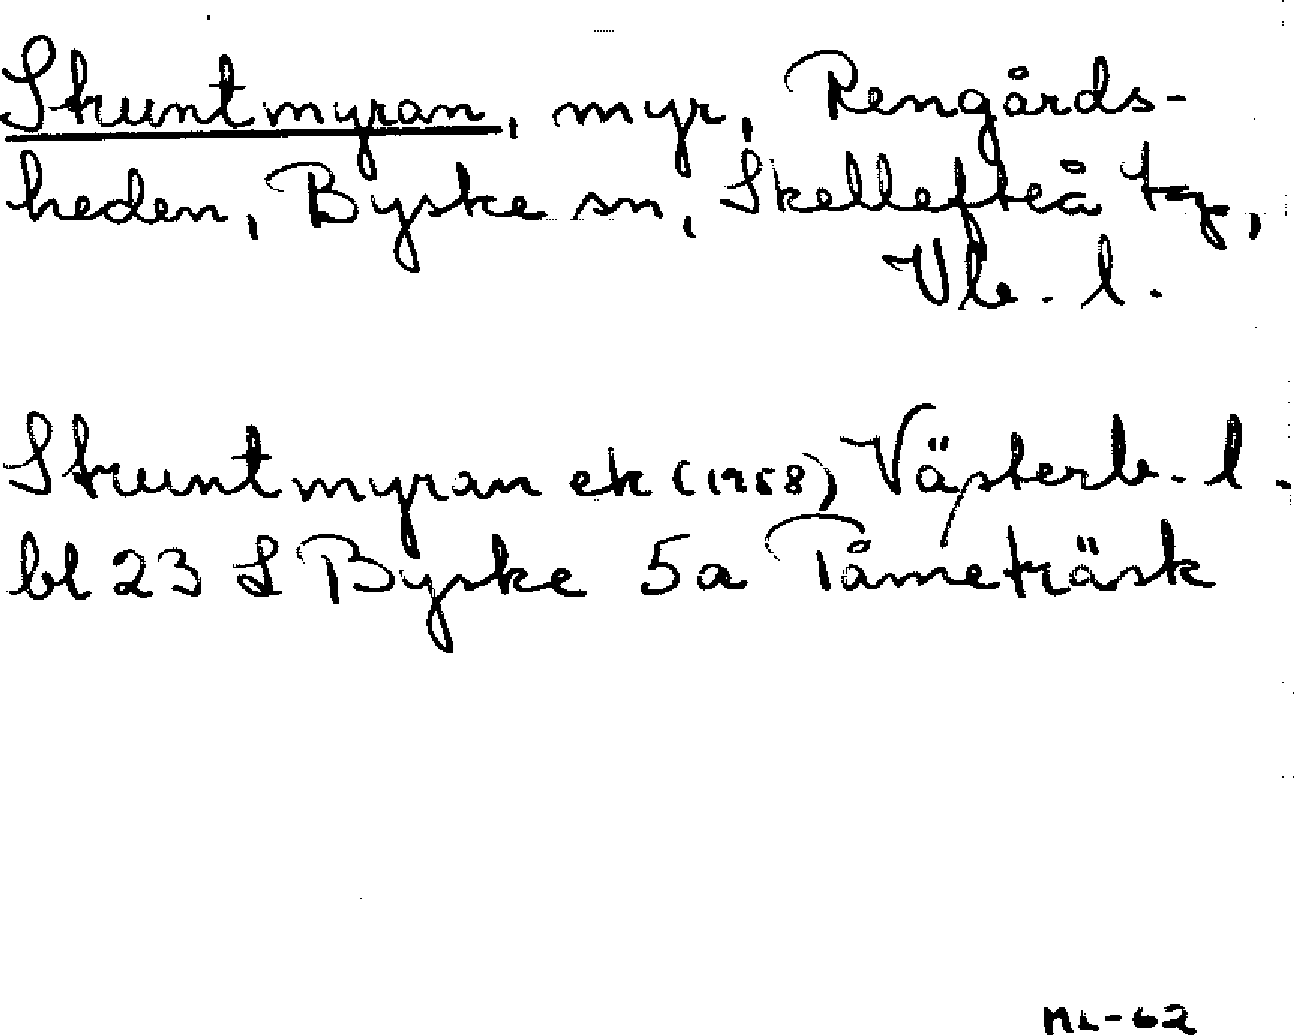 Skuntmyran, myr, Rengårds-
heden, Byske sn, Skellefteå tg,
Vb. l.
Skuntmyran ek (1958) Västerb. l.
bl 23 L Byske 5a Tåmeträsk
ML-62